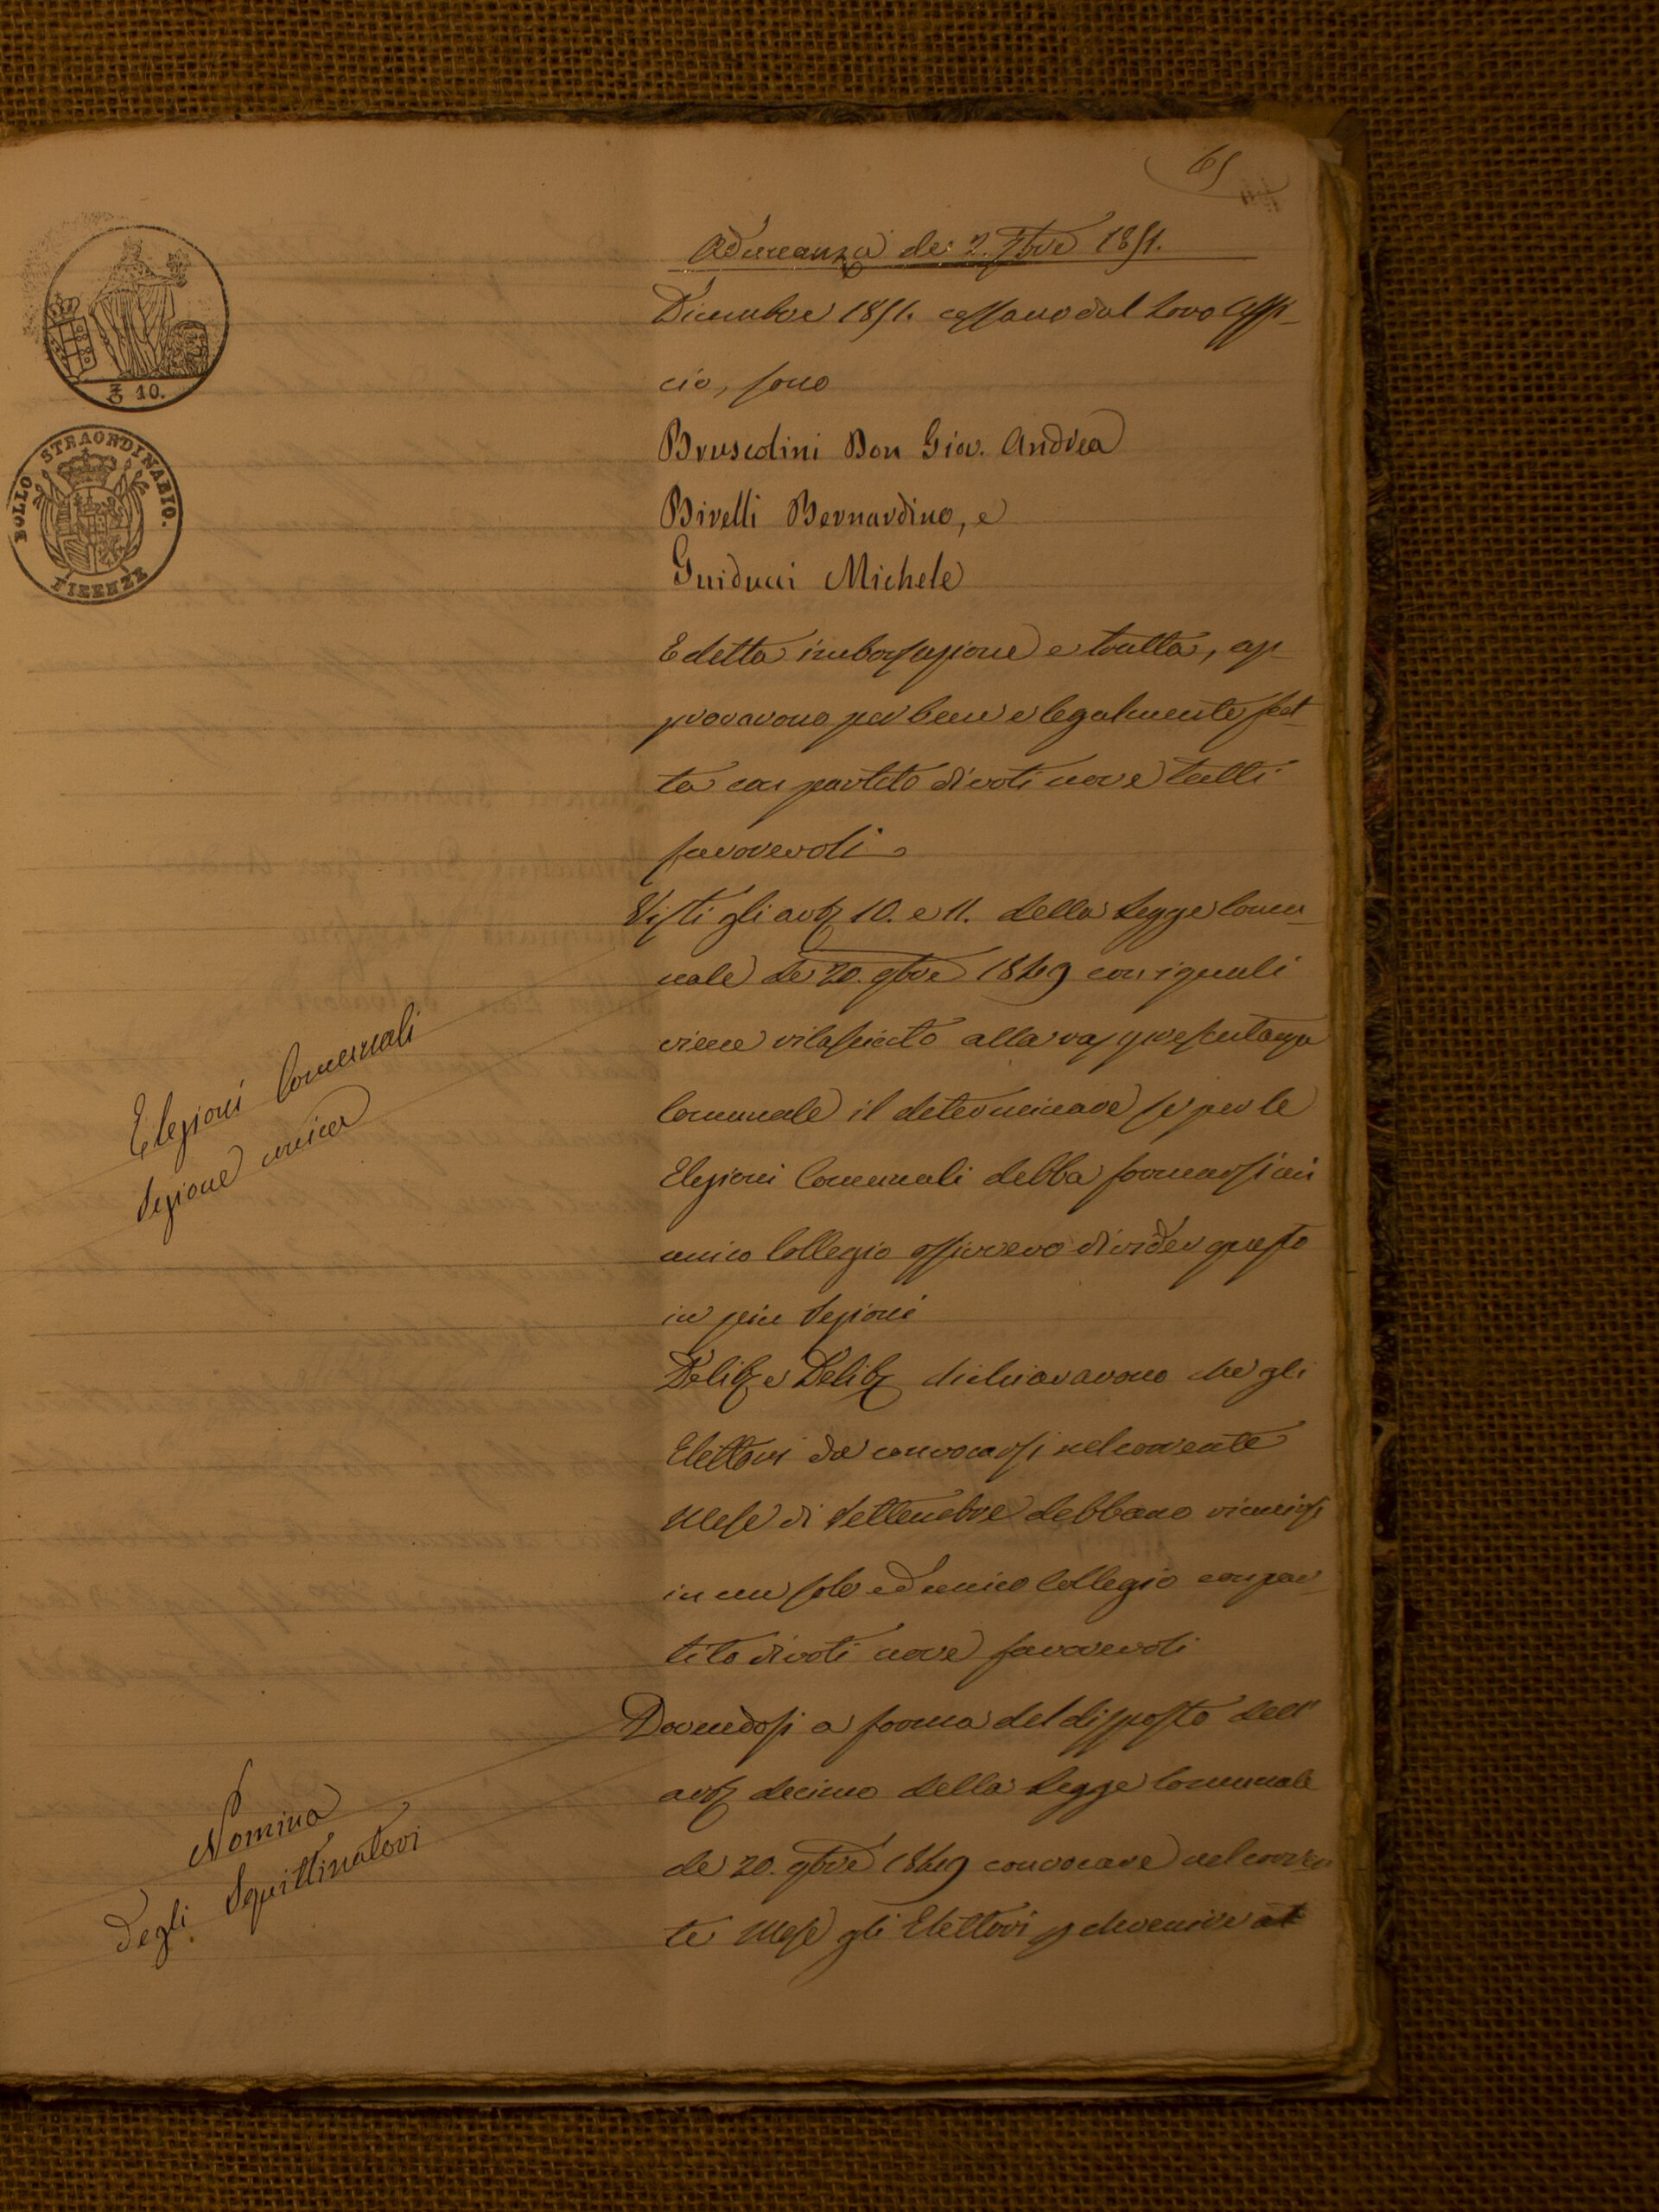 65
Adunanza de 2. 7bre 1851.
Dicembre 1851. cessano dal Loro Uffi-
cio, sono
Bruscolini Don Giov. Andrea
Birelli Bernardino, e
Guiducci Michele
E detta imborsazione e tratta, ap-
provarono per bene e legalmente fat-
ta con partito di voti nove tutti
favorevoli
Visti gli artt. 10. e 11. della Legge Comu-
nale de 20. 9bre 1849 con i quali
viene rilasciato alla rappresentanza
Comunale il determinare se per le
Elezioni Comunali debba formarsi un
unico Collegio ossivvero divider questo
in più Sezioni
Elezioni Comunali
Sezione unica
Delib. e Delib. dichiararono che gli
Elettori da convocarsi nel corrente
Mese di Settembre debbano riunirsi
in un solo ed unico Collegio con par-
tito di voti nove favorevoli
Dovendosi a forma del disposto dell'
art. decimo della Legge Comunale
de 20. 9bre 1849 convocare nel corren-
te Mese gli Elettori p. devenire al
Nomina
degli Squittinatori
Z 10.
BOLLO STRAORDINARIO.
FIRENZE